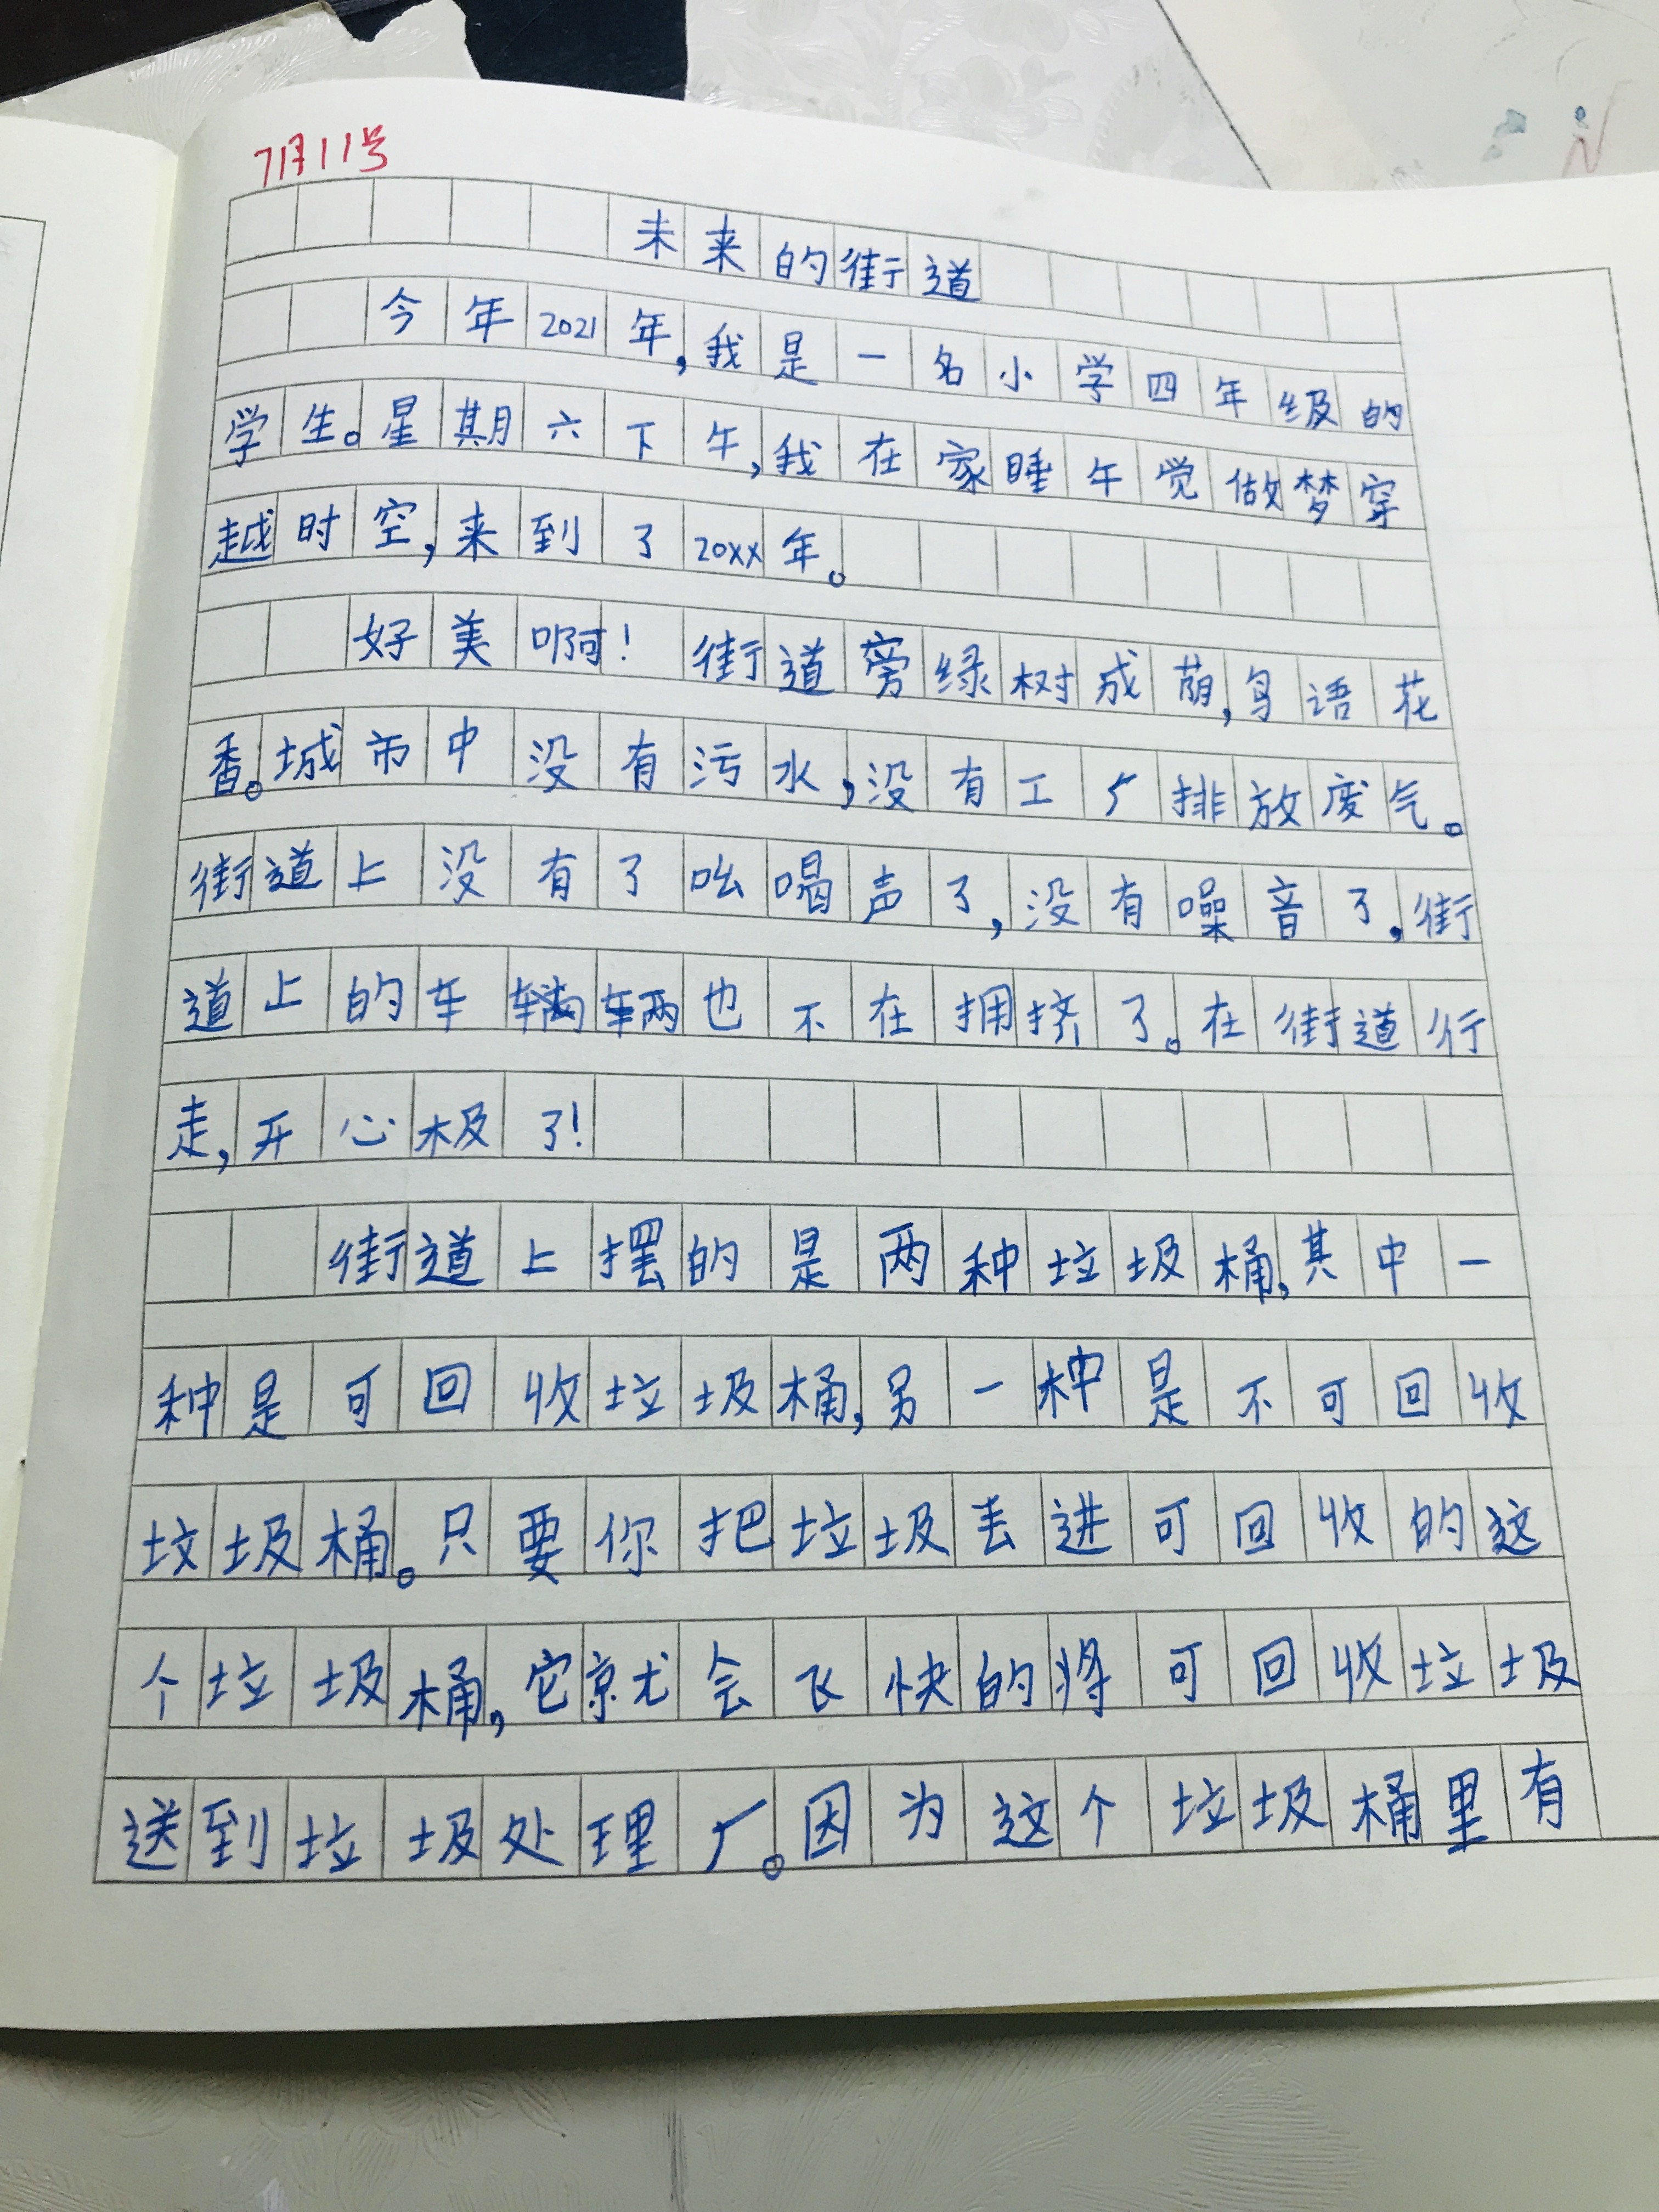 7月11号
未来的街道
今年2021年,我是一名小学四年级的
学生。星期六下午,我在家睡午觉做梦穿
越时空,来到了20xx年。
好美啊!街道旁绿树成荫,鸟语花
香。城市中没有污水,没有工厂排放废气。
街道上没有了吆喝声了,没有噪音了,街
道上的车辆也不在拥挤了。在街道行
走,开心极了!
街道上摆的是两种垃圾桶,其中一
种是可回收垃圾桶,另一种是不可回收
垃圾桶。只要你把垃圾丢进可回收的这
个垃圾桶,它就会飞快的将可回收垃圾
送到垃圾处理厂。因为这个垃圾桶里有